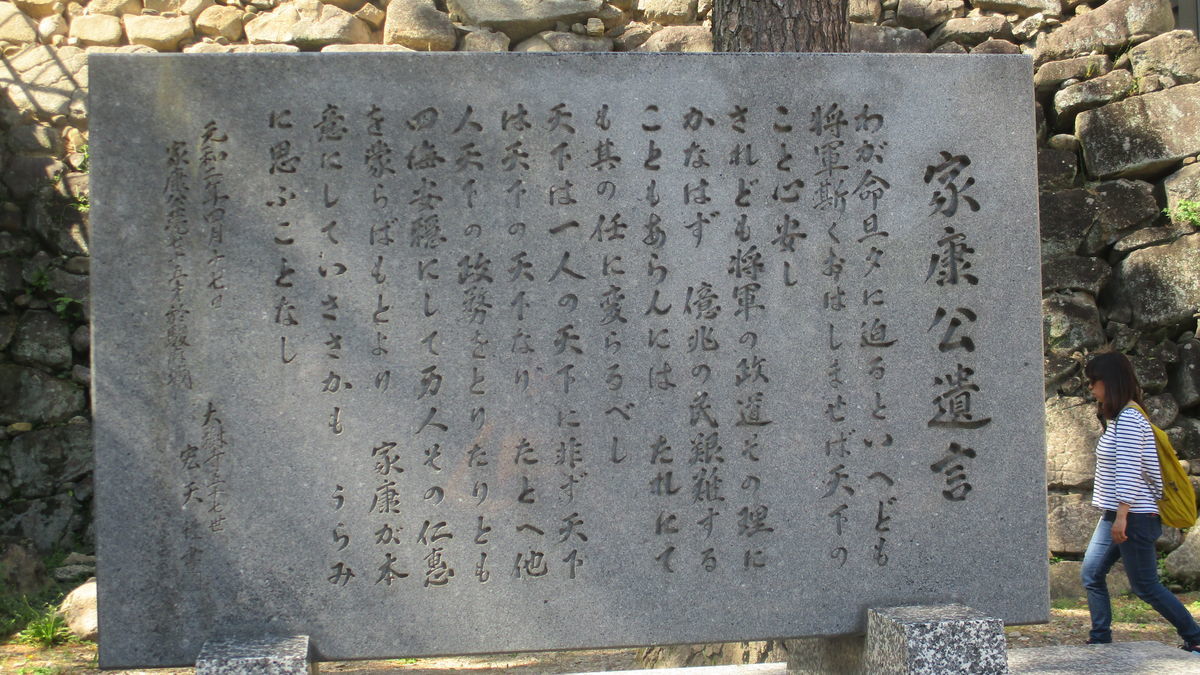 家康公遺言
わが命旦夕に迫るといへども
将軍斯くおはしませば天下の
こと心安し
されども将軍の政道その理に
かなはず 億兆の民艱難する
こともあらんには たれにて
も其の任に変らるべし
天下は一人の天下に非ず天下
は天下の天下なり たとへ他
人天下の政務をとりたりとも
四海安穏にして万人その仁恵
を蒙らばもとより 家康が本
意にしていささかも うらみ
に思ふことなし
元和二年四月十七日
家康公 七十五才 於駿府城
大樹寺 十七世
宏天